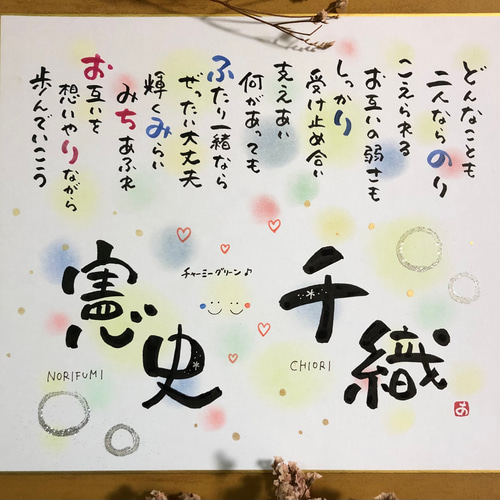 どんなことも
二人ならのり
こえられる
お互いの弱さも
しっかり
受け止め合い
支えあい
何があっても
ふたり一緒なら
ぜったい大丈夫
輝くみらい
みちあふれ
お互いを
想いやりながら
歩んでいこう
千織
CHIORI
チャーミーグリーン♪
憲史
NORIFUMI
お